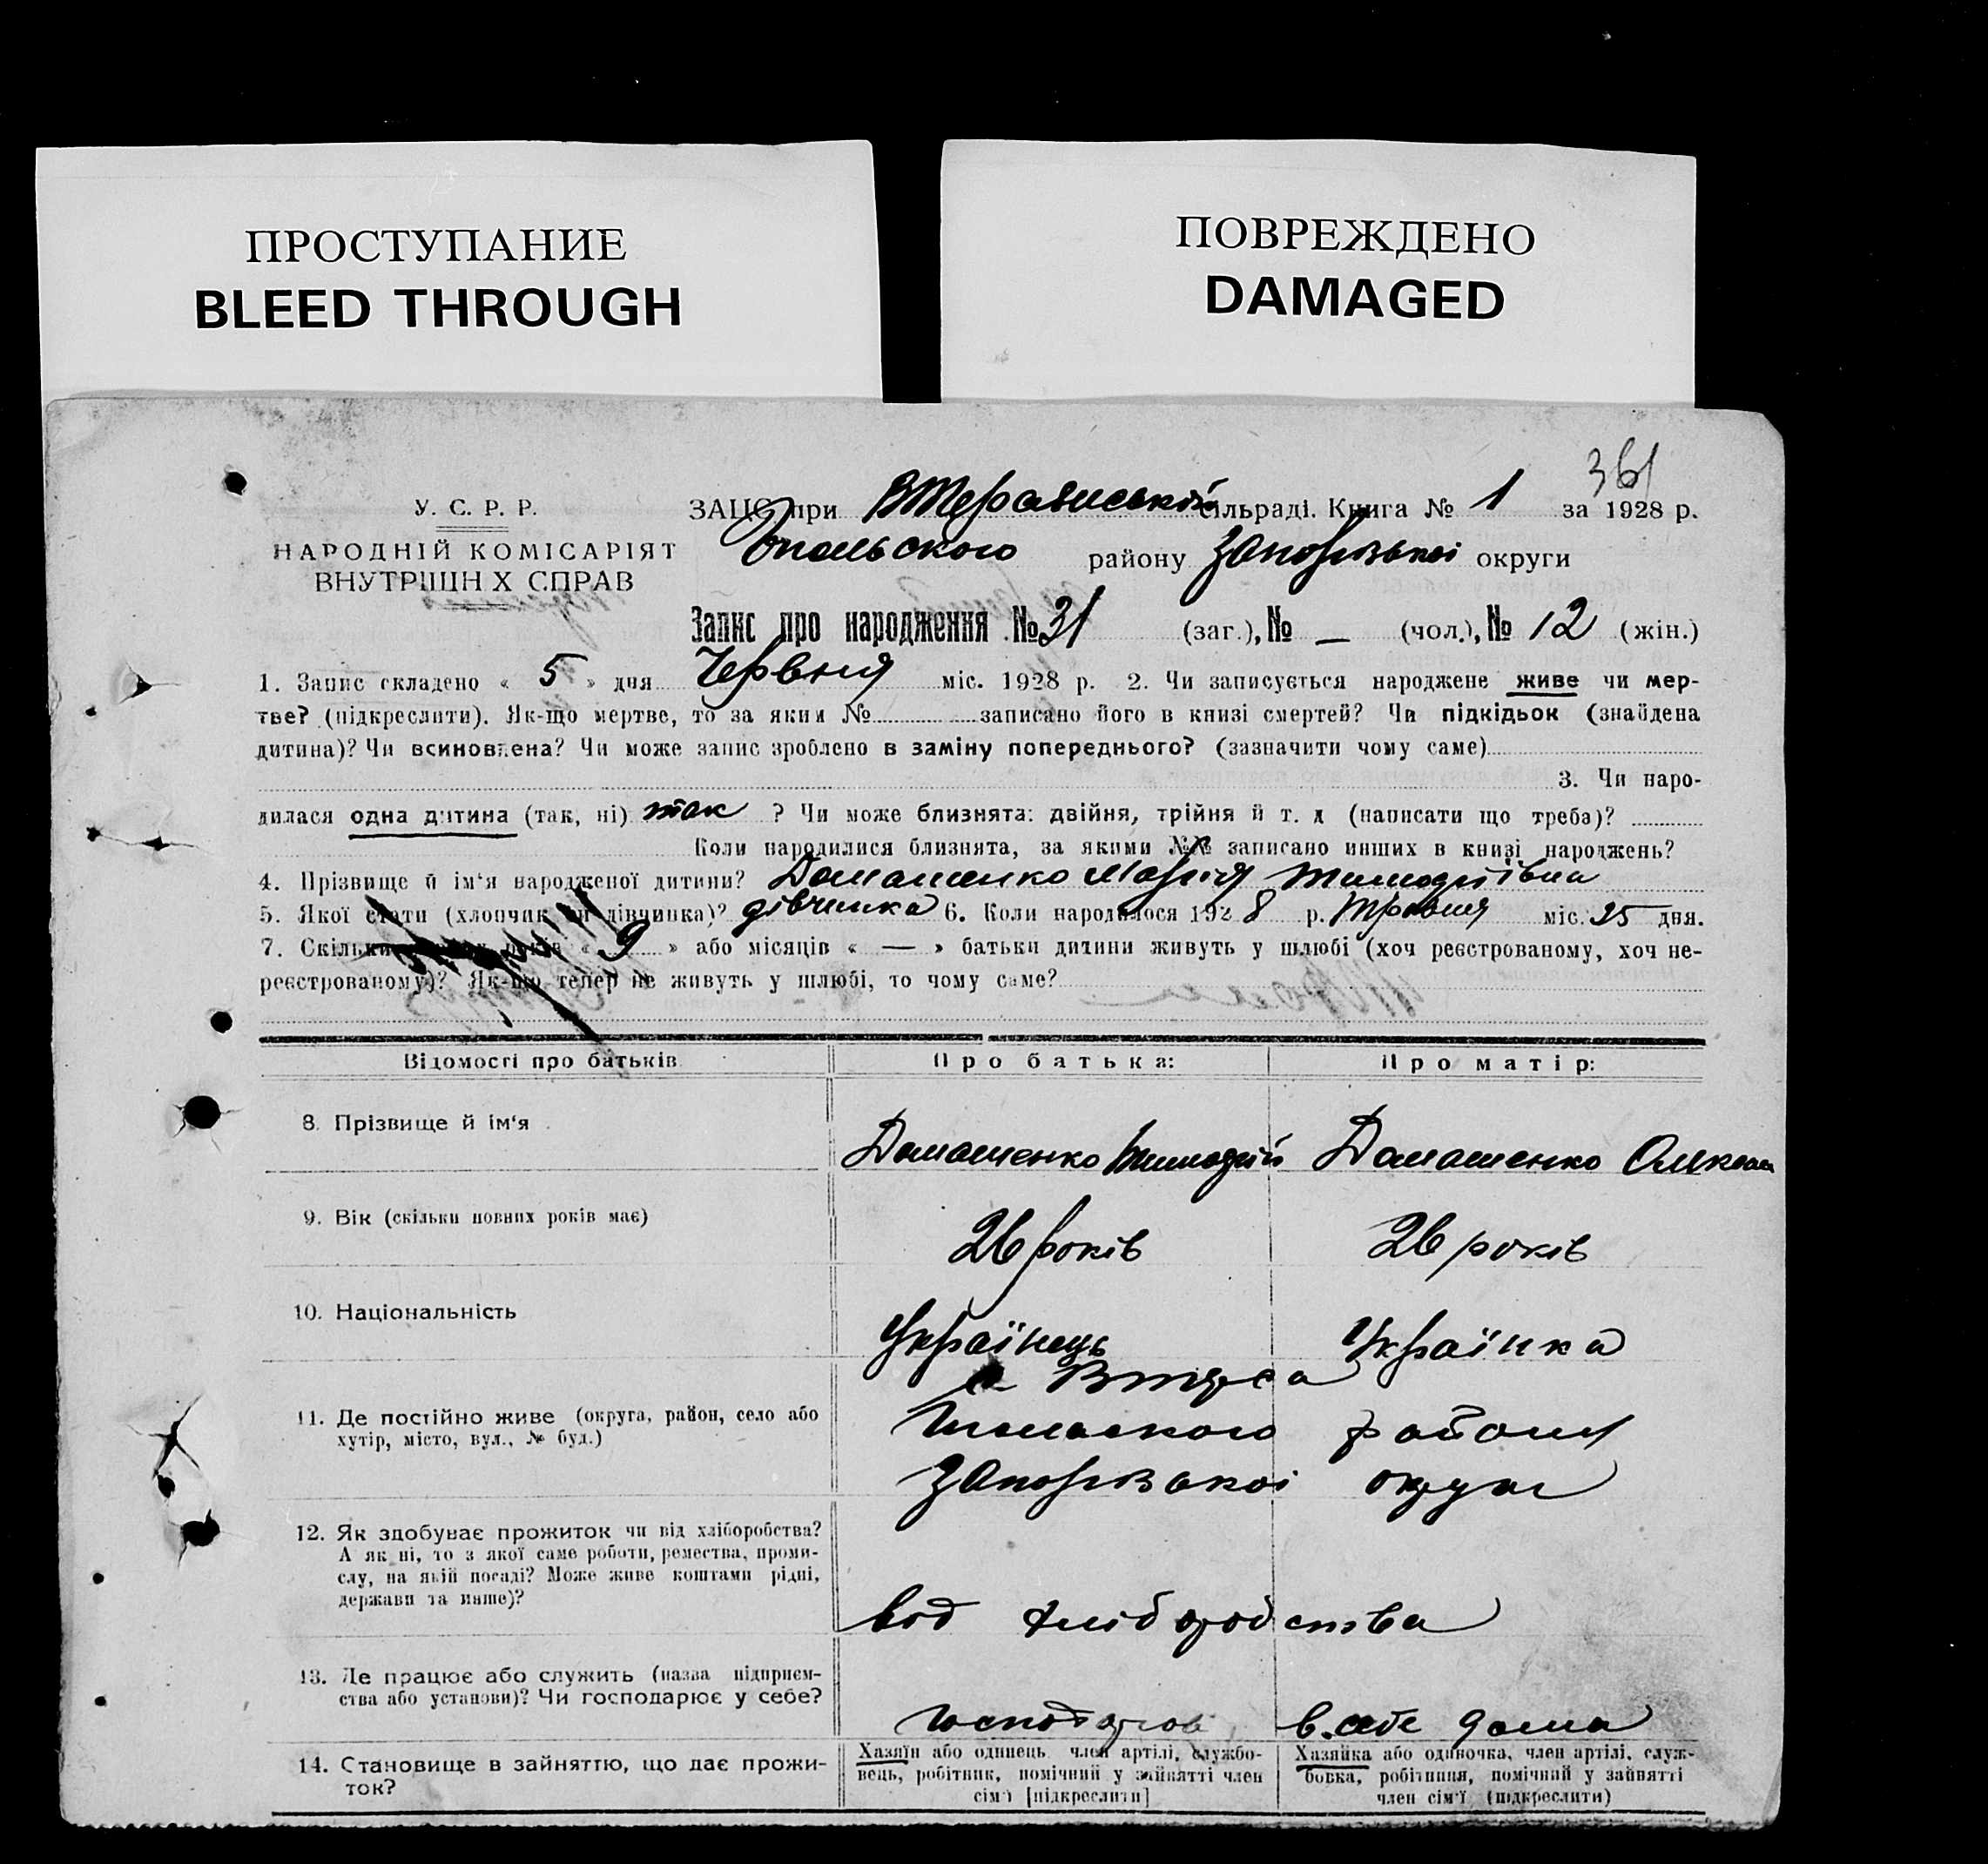 ПРОСТУПАНИЕ
BLEED THROUGH
ПОВРЕЖДЕНО
DAMAGED
361
У. С. Р. Р.
НАРОДНІЙ КОМІСАРІЯТ
ВНУТРІШН Х СПРАВ
ЗАЦС при сільраді. Книга № 1 за 1928 р.
району Запорізької округи
Запис про народження № 31 (заг.), № — (чол.), № 12 (жін.)
1. Запис складено « 5 » дня Червня міс. 1928 р. 2. Чи записується народжене живе чи мер-
тве? (підкреслити). Як-що мертве, то за яким № записано його в книзі смертей? Чи підкідьок (знайдена
дитина)? Чи всиновлена? Чи може запис зроблено в заміну попереднього? (зазначити чому саме)
3. Чи наро-
дилася одна дитина (так, ні) так ? Чи може близнята: двійня, трійня й т. д (написати що треба)?
Коли народилися близнята, за якими №№ записано инших в книзі народжень?
4. Прізвище й ім'я народженої дитини? Домашенко Марія Тимофіївна
5. Якої стати (хлопчик чи дівчинка)? дівчинка 6. Коли народилося 1928 р. Травня міс. 25 дня.
7. Скільки повних років « 9 » або місяців « — » батьки дитини живуть у шлюбі (хоч реєстрованому, хоч не-
реєстрованому)? Як-що тепер не живуть у шлюбі, то чому саме?
Відомості про батьків
Про батька:
Про матір:
8. Прізвище й ім'я
Домашенко Тимофій
Домашенко
9. Вік (скільки повних років має)
26 років
26 років
10. Національність
Українець
Українка
11. Де постійно живе (округа, район, село або
хутір, місто, вул., № буд.)
району
Запорізької округи
12. Як здобуває прожиток чи від хліборобства?
А як ні, то з якої саме роботи, ремества, проми-
слу, на якій посаді? Може живе коштами рідні,
держави та инше)?
від хліборобства
13. Де працює або служить (назва підприєм-
ства або установи)? Чи господарює у себе?
в себе дома
14. Становище в зайняттю, що дає прожи-
ток?
Хазяїн або одинець, член артілі, службо-
вець, робітник, помічний у зайнятті член
сім'ї [підкреслити]
Хазяйка або одиночка, член артілі, служ-
бовка, робітниця, помічний у зайнятті
член сім'ї (підкреслити)